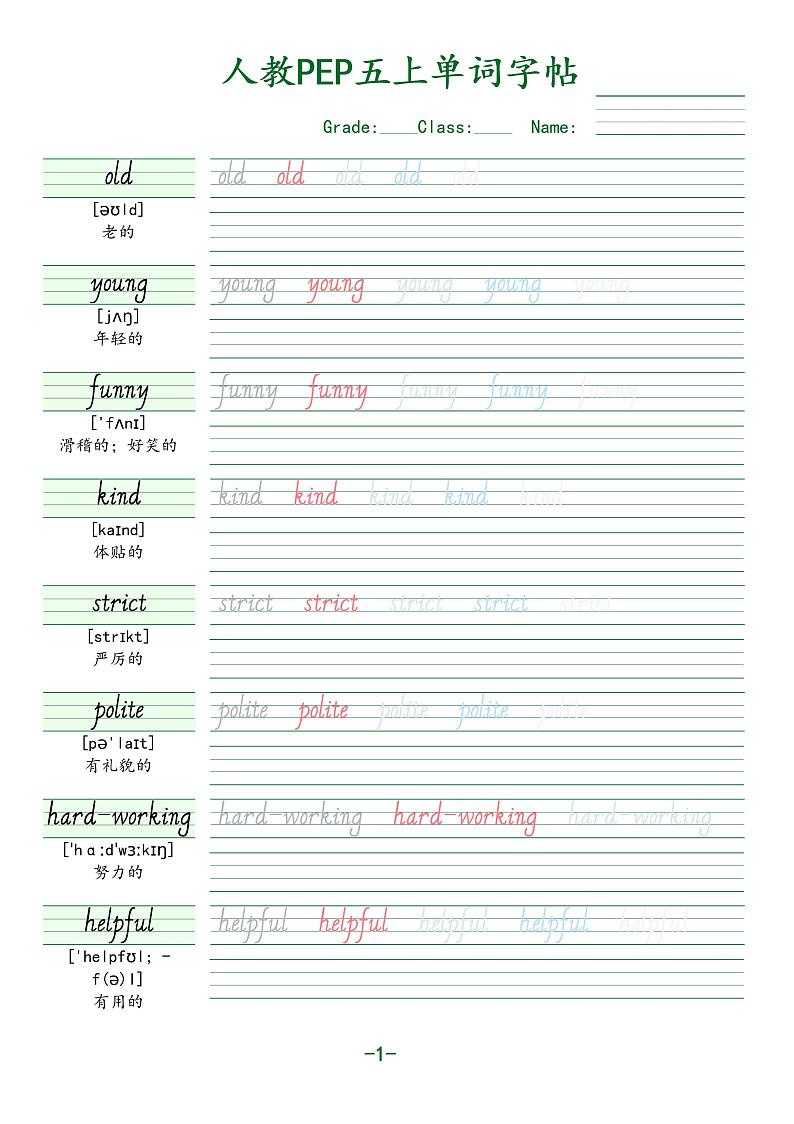 人教PEP五上单词字帖
Grade:____Class:____ Name:
old old old old old old
[əʊld]
老的
young young young young young young
[jʌŋ]
年轻的
funny funny funny funny funny funny
['fʌnɪ]
滑稽的；好笑的
kind kind kind kind kind kind
[kaɪnd]
体贴的
strict strict strict strict strict strict
[strɪkt]
严厉的
polite polite polite polite polite polite
[pə'laɪt]
有礼貌的
hard-working hard-working hard-working hard-working
['hɑːd'wɜːkɪŋ]
努力的
helpful helpful helpful helpful helpful helpful
['helpfʊl; -
f(ə)l]
有用的
-1-